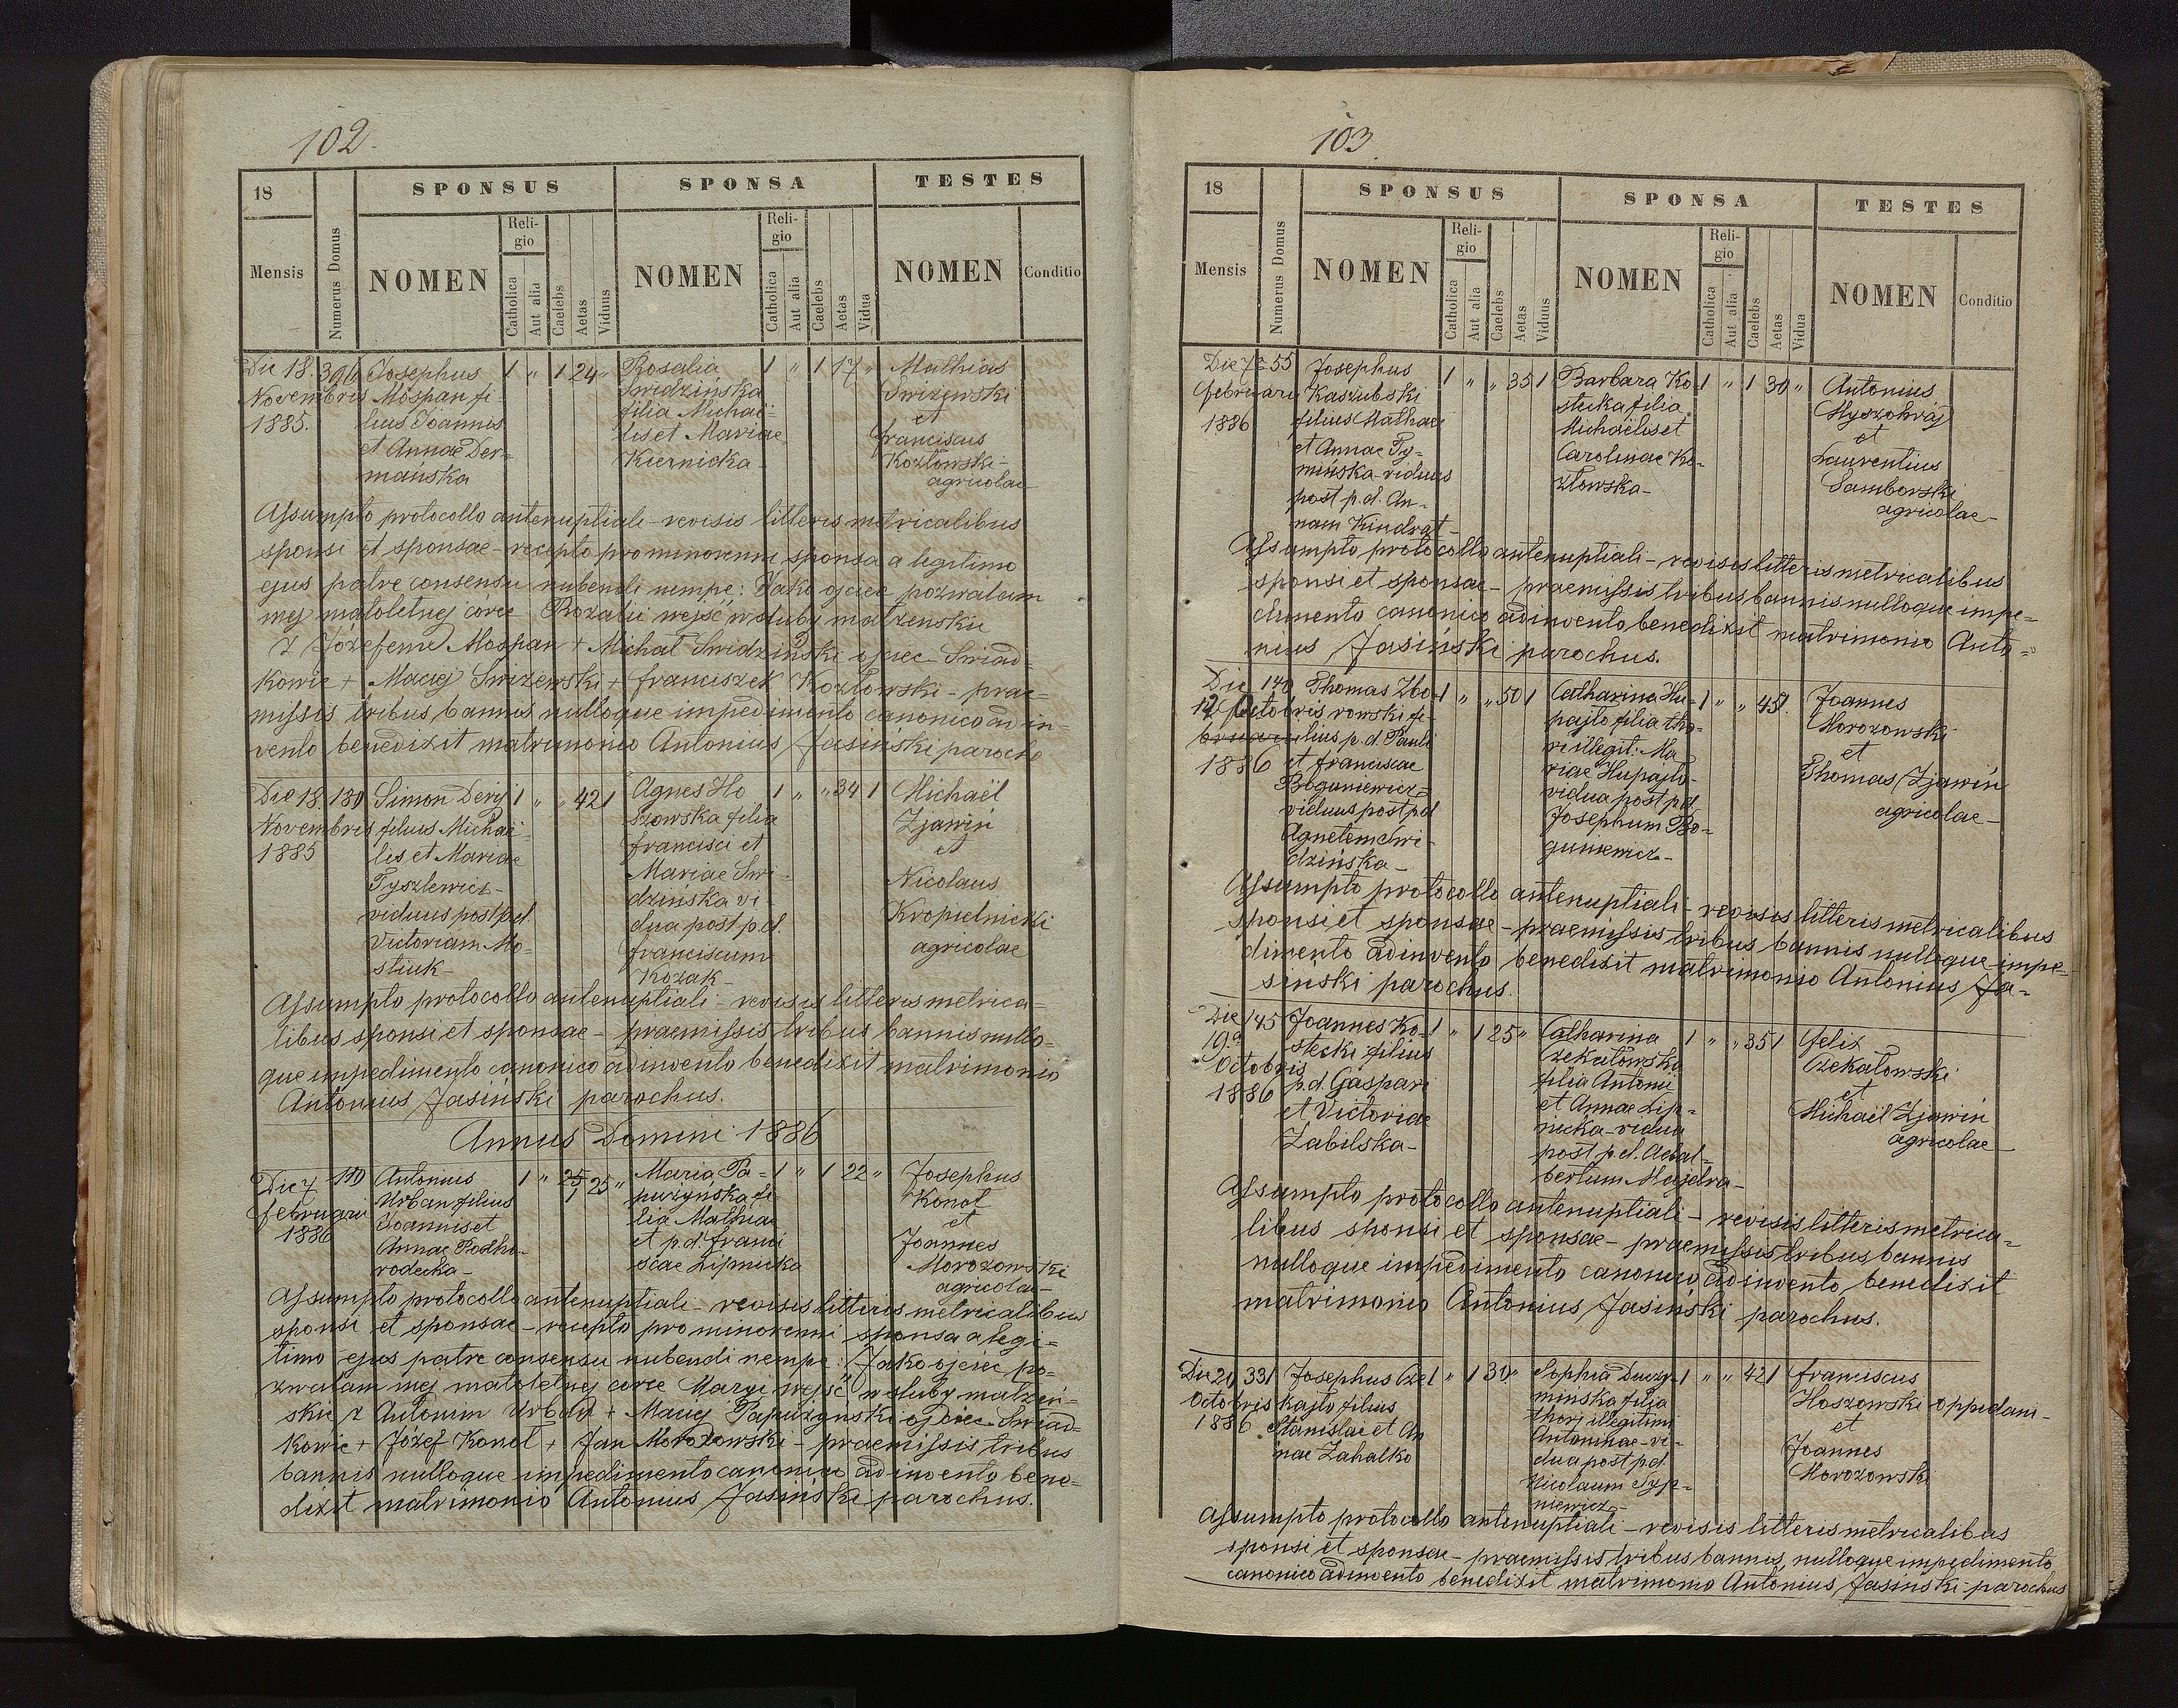 102.
18
Mensis
Numerus Domus
SPONSUS
NOMEN
Reli-
gio
Catholica
Aut alia
Caelebs
Aetas
Viduus
SPONSA
NOMEN
Reli-
gio
Catholica
Aut alia
Caelebs
Aetas
Vidua
TESTES
NOMEN
Conditio
Die 18.
Novembris
1885.
396
Josephus
Mospan fi-
lius Joannis
et Annae Der-
mańska
1 " 1 24 "
Rosalia
Swidzińska
filia Michaë-
lis et Mariae
Kiernicka-
1 " 1 17 "
Mathias
Swizewski
et
Franciscus
Kozłowski-
agricolae
Assumpto protocollo antenuptiali - revisis litteris metricalibus
sponsi et sponsae - recepto pro minorenni sponsa a legitimo
ejus patre consensu nubendi nempe: Jako ojciec pozwalam
mej małoletnej córce Rozalii wejść w śluby małżenskie
z Józefem Mospan + Michał Swidziński ojciec Świad-
kowie + Maciej Swizewski + Franciszek Kozłowski - prae-
missis tribus bannis nulloque impedimento canonico adin-
vento benedixit matrimonio Antonius Jasiński paroch
Die 18.
Novembris
1885
180
Simon Dery
filius Michaë-
lis et Mariae
Tyszlewicz-
viduus post p.d.
Victoriam Mo-
stiuk-
1 " " 42 1
Agnes Ho
szowska filia
Francisci et
Mariae Swi-
dzińska vi-
dua post p.d.
Franciscum
Kozak-
1 " " 34 1
Michaël
Zjawin
et
Nicolaus
Kropielnicki
agricolae
Assumpto protocollo antenuptiali - revisis litteris metrica-
libus sponsi et sponsae - praemissis tribus bannis nullo-
que impedimento canonico adinvento benedixit matrimonio
Antonius Jasiński parochus.
Annus Domini 1886
Die 7
Februarii
1886
Antonius
Urban filius
Joannis et
Annae Podho-
rodecka-
25 "
Maria Pa-
puzynska fi
lia Mathiae
et p.d. Franci
scae Lipnicka
1 " 1 22 "
Josephus
Konol
et
Joannes
Morozowski
agricolae-
Assumpto protocollo antenuptiali - revisis litteris metricalibus
sponsi et sponsae - recepto pro minorenni sponsa a legi-
timo ejus patre consensu nubendi nempe: Jako ojciec po-
zwalam mej małoletnej córce Maryi wejść w śluby małżeń-
skie z Antonim Urban + Maciej Papużyński ojciec Świad-
kowie + Józef Konol + Jan Morozowski - praemissis tribus
bannis nulloque impedimento canonico adinvento bene-
dixit matrimonio Antonius Jasiński parochus.
103
18
Mensis
Numerus Domus
SPONSUS
NOMEN
Reli-
gio
Catholica
Aut alia
Caelebs
Aetas
Viduus
SPONSA
NOMEN
Reli-
gio
Catholica
Aut alia
Caelebs
Aetas
Vidua
TESTES
NOMEN
Conditio
Die 7a
Februarii
1886
55
Josephus
Kaszubski
filius Mathaei
et Annae Ty-
mińska-viduus
post p.d. An-
nam Kindrat-
1 " " 35 1
Barbara Ko-
stecka filia
Michaëlis et
Carolinae Ko-
złowska-
1 " 1 30 "
Antonius
Myszohraj
et
Laurentius
Samborski
agricolae-
Assumpto protocollo antenuptiali - revisis litteris metricalibus
sponsi et sponsae - praemissis tribus bannis nulloque impe-
dimento canonico adinvento benedixit matrimonio Anto-
nius Jasiński parochus.
Die
12 Octobris
1886
140
Thomas Zbo-
rowski fi-
lius p.d. Pauli
et Franciscae
Boguniewicz-
viduus post p.d
Agnetem Swi-
dzińska-
1 " " 50 1
Catharina Hu-
pajło filia tho-
ri illegit: Ma
riae Hupajło-
vidua post p.d
Josephum Bo-
guniewicz-
1 " " 45 1.
Joannes
Morozowski
et
Thomas Zjawin
agricolae-
Assumpto protocollo antenuptiali - revisis litteris metricalibus
sponsi et sponsae - praemissis tribus bannis nulloque impe-
dimento adinvento benedixit matrimonio Antonius Ja-
siński parochus.
Die
19a
Octobris
1886
145
Joannes Ko-
stecki filius
p.d. Gaspari
et Victoriae
Zabilska-
1 " 1 25 "
Catharina
Czekałowska
filia Antonii
et Annae Lip-
nicka-vidua
post p.d. Adal-
bertum Majdra-
1 " " 35 1
Felix
Czekałowski
et
Michaël Zjawin
agricolae-
Assumpto protocollo antenuptiali - revisis litteris metrica-
libus sponsi et sponsae - praemissis tribus bannis
nulloque impedimento canonico adinvento benedixit
matrimonio Antonius Jasiński parochus.
Die 20
Octobris
1886
331
Josephus Cze
kajło filius
Stanislai et An
nae Zahalko
1 " 1 30 "
Sophia Duczy-
mińska filia
thori illegitimi
Antoninae-vi-
dua post p.d.
Nicolaum Syp-
niewicz-
1 " " 42 1
Franciscus
Hoszowski oppidani-
et
Joannes
Morozowski
Assumpto protocollo antenuptiali - revisis litteris metricalibus
sponsi et sponsae - praemissis tribus bannis, nulloque impedimento
canonico adinvento benedixit matrimonio Antonius Jasiński-parochus